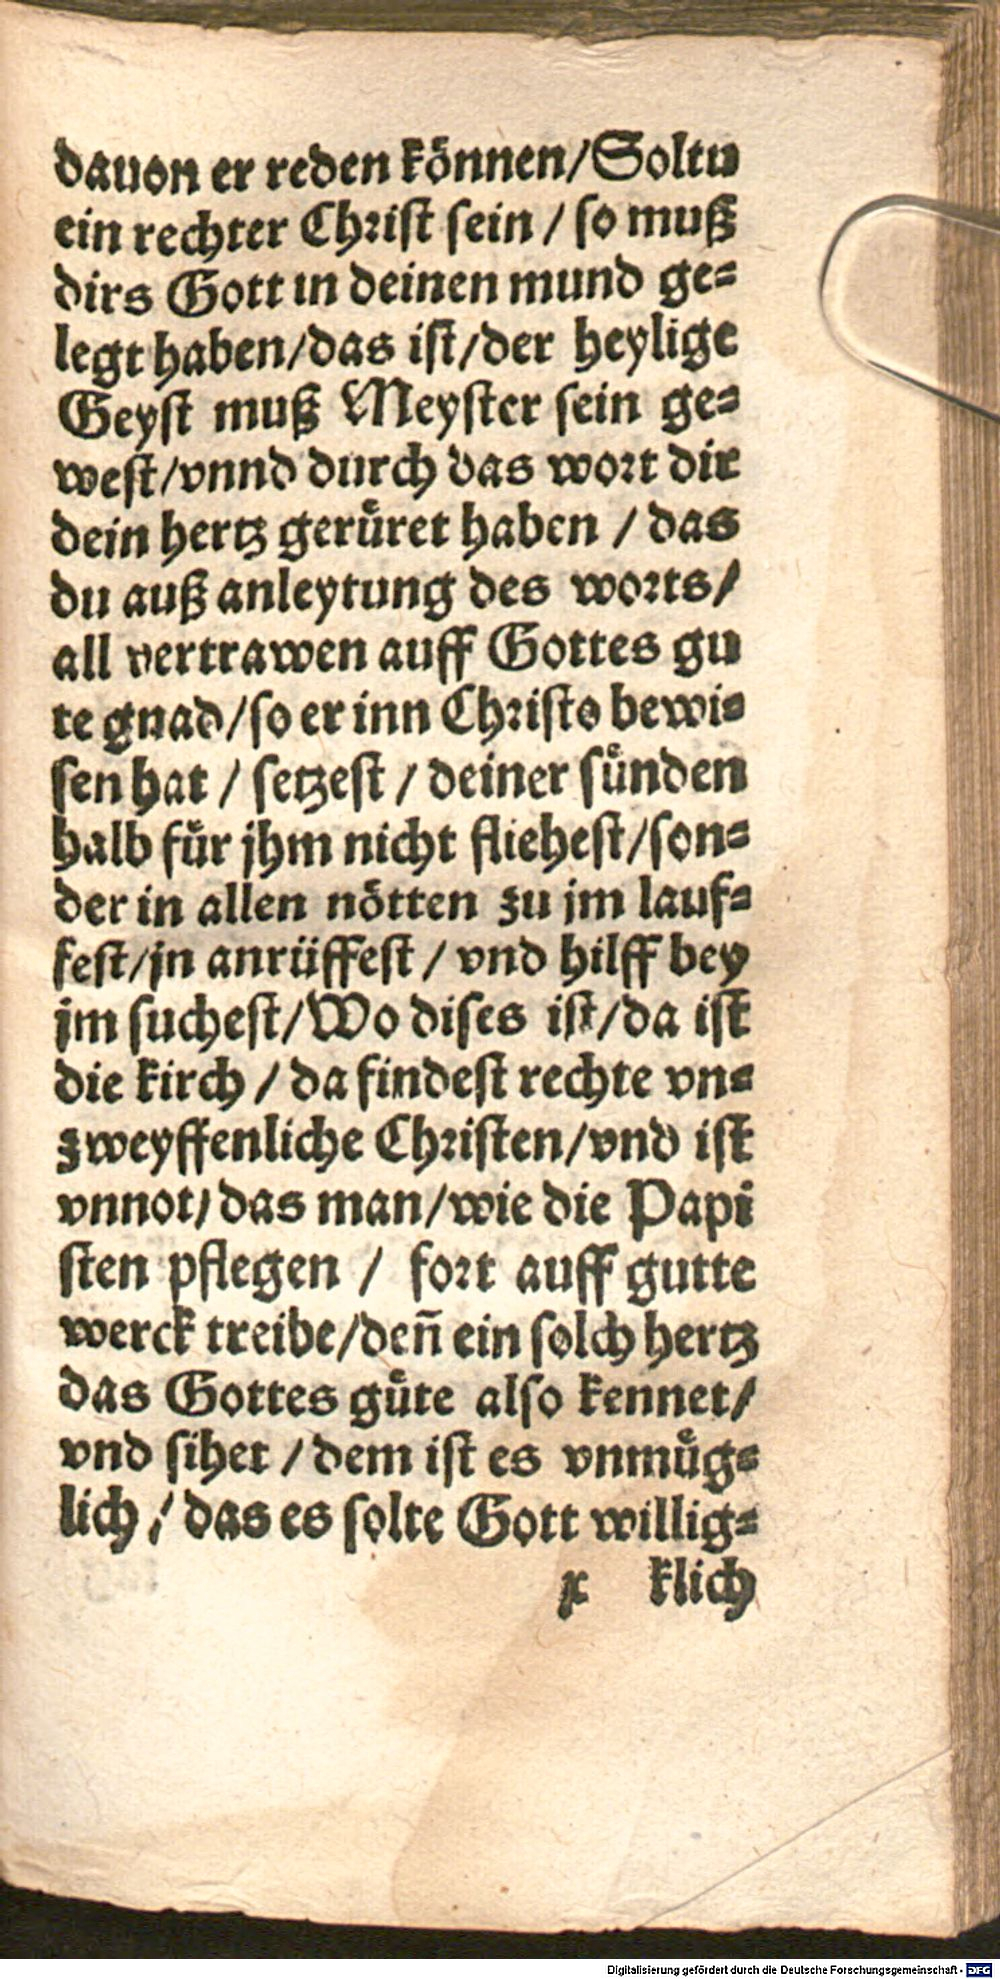 dauon er reden können/Soltu
ein rechter Christ sein / so muß
dirs Gott in deinen mund ge=
legt haben/das ist/der heylige
Geyst muß Meyster sein ge=
west/vnnd durch das wort dir
dein hertz gerůret haben / das
du auß anleytung des worts/
all vertrawen auff Gottes gu
te gnad/so er inn Christo bewi=
sen hat / setzest / deiner sůnden
halb fůr jhm nicht fliehest/son=
der in allen nötten zu jm lauf=
fest/jn anrüffest / vnd hilff bey
jm suchest/Wo dises ist/da ist
die kirch / da findest rechte vn=
zweyffenliche Christen/vnd ist
vnnot/das man/wie die Papi
sten pflegen / fort auff gutte
werck treibe/deñ ein solch hertz
das Gottes gůte also kennet/
vnd sihet / dem ist es vnmůg=
lich / das es solte Gott willig=
x klich
Digitalisierung gefördert durch die Deutsche Forschungsgemeinschaft - DFG